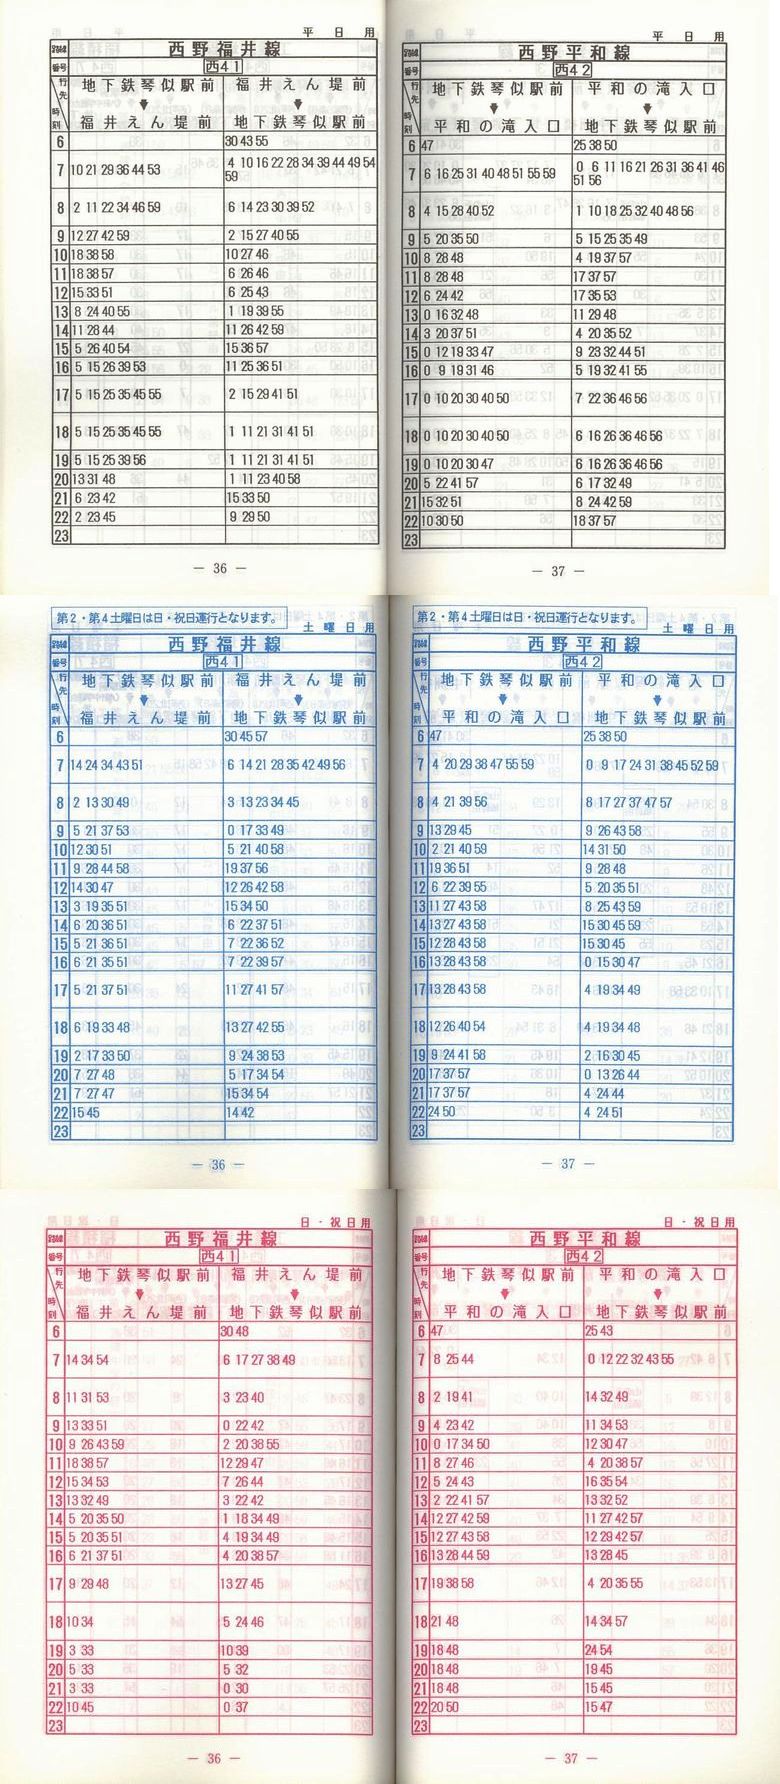 平日用
西野福井線
番号 西41
行先 地下鉄琴似駅前 福井えん堤前
▼ ▼
時刻 福井えん堤前 地下鉄琴似駅前
6 30 43 55
7 10 21 29 36 44 53 4 10 16 22 28 34 39 44 49 54
59
8 2 11 22 34 46 59 6 14 23 30 39 52
9 12 27 42 59 2 15 27 40 55
10 18 38 58 10 27 46
11 18 38 57 6 26 46
12 15 33 51 6 25 43
13 8 24 40 55 1 19 39 55
14 11 28 44 11 26 42 59
15 5 26 40 54 15 36 57
16 5 15 26 39 53 11 25 36 51
17 5 15 25 35 45 55 2 15 29 41 51
18 5 15 25 35 45 55 1 11 21 31 41 51
19 5 15 25 39 56 1 11 21 31 41 51
20 13 31 48 1 11 23 40 58
21 6 23 42 15 33 50
22 2 23 45 9 29 50
23
― 36 ―
平日用
西野平和線
番号 西42
行先 地下鉄琴似駅前 平和の滝入口
▼ ▼
時刻 平和の滝入口 地下鉄琴似駅前
6 47 25 38 50
7 6 16 25 31 40 48 51 55 59 0 6 11 16 21 26 31 36 41 46
51 56
8 4 15 28 40 52 1 10 18 25 32 40 48 56
9 5 20 35 50 5 15 25 35 49
10 8 28 48 4 19 37 57
11 8 28 48 17 37 57
12 6 24 42 17 35 53
13 0 16 32 48 11 29 48
14 3 20 37 51 4 20 35 52
15 0 12 19 33 47 9 23 32 44 51
16 0 9 19 31 46 5 19 32 41 55
17 0 10 20 30 40 50 7 22 36 46 56
18 0 10 20 30 40 50 6 16 26 36 46 56
19 0 10 20 30 47 6 16 26 36 46 56
20 5 22 41 57 6 17 32 49
21 15 32 51 8 24 42 59
22 10 30 50 18 37 57
23
― 37 ―
第2・第4土曜日は日・祝日運行となります。
土曜日用
西野福井線
番号 西41
行先 地下鉄琴似駅前 福井えん堤前
▼ ▼
時刻 福井えん堤前 地下鉄琴似駅前
6 30 45 57
7 14 24 34 43 51 6 14 21 28 35 42 49 56
8 2 13 30 49 3 13 23 34 45
9 5 21 37 53 0 17 33 49
10 12 30 51 5 21 40 58
11 9 28 44 58 19 37 56
12 14 30 47 12 26 42 58
13 3 19 35 51 15 34 50
14 6 20 36 51 6 22 37 51
15 5 21 36 51 7 22 36 52
16 6 21 35 51 7 22 39 57
17 5 21 37 51 11 27 41 57
18 6 19 33 48 13 27 42 55
19 2 17 33 50 9 24 38 53
20 7 27 48 5 17 34 54
21 7 27 47 15 34 54
22 15 45 14 42
23
― 36 ―
第2・第4土曜日は日・祝日運行となります。
土曜日用
西野平和線
番号 西42
行先 地下鉄琴似駅前 平和の滝入口
▼ ▼
時刻 平和の滝入口 地下鉄琴似駅前
6 47 25 38 50
7 4 20 29 38 47 55 59 0 9 17 24 31 38 45 52 59
8 4 21 39 56 8 17 27 37 47 57
9 13 29 45 9 26 43 58
10 2 21 40 59 14 31 50
11 19 36 51 9 28 48
12 6 22 39 55 5 20 35 51
13 11 27 43 58 8 25 43 59
14 13 27 43 58 15 30 45 59
15 12 28 43 58 15 30 45
16 13 28 43 58 0 15 30 47
17 13 28 43 58 4 19 34 49
18 12 26 40 54 4 19 34 48
19 9 24 41 58 2 16 30 45
20 17 37 57 0 13 26 44
21 17 37 57 4 24 44
22 24 50 4 24 51
23
― 37 ―
日・祝日用
西野福井線
番号 西41
行先 地下鉄琴似駅前 福井えん堤前
▼ ▼
時刻 福井えん堤前 地下鉄琴似駅前
6 30 48
7 14 34 54 6 17 27 38 49
8 11 31 53 3 23 40
9 13 33 51 0 22 42
10 9 26 43 59 2 20 38 55
11 18 38 57 12 29 47
12 15 34 53 7 26 44
13 13 32 49 3 22 42
14 5 20 35 50 1 18 34 49
15 5 20 35 51 4 19 34 49
16 6 21 37 51 4 20 38 57
17 9 29 48 13 27 45
18 10 34 5 24 46
19 3 33 10 39
20 5 33 5 32
21 3 33 0 30
22 10 45 0 37
23
― 36 ―
日・祝日用
西野平和線
番号 西42
行先 地下鉄琴似駅前 平和の滝入口
▼ ▼
時刻 平和の滝入口 地下鉄琴似駅前
6 47 25 43
7 8 25 44 0 12 22 32 43 55
8 2 19 41 14 32 49
9 4 23 42 11 34 53
10 0 17 34 50 12 30 47
11 8 27 46 4 20 38 57
12 5 24 43 16 35 54
13 2 22 41 57 13 32 52
14 12 27 42 59 11 27 42 57
15 12 27 43 58 12 29 42 57
16 13 28 44 59 13 28 45
17 19 38 58 4 20 35 55
18 21 48 14 34 57
19 18 48 24 54
20 18 48 19 45
21 18 48 15 45
22 20 50 15 47
23
― 37 ―